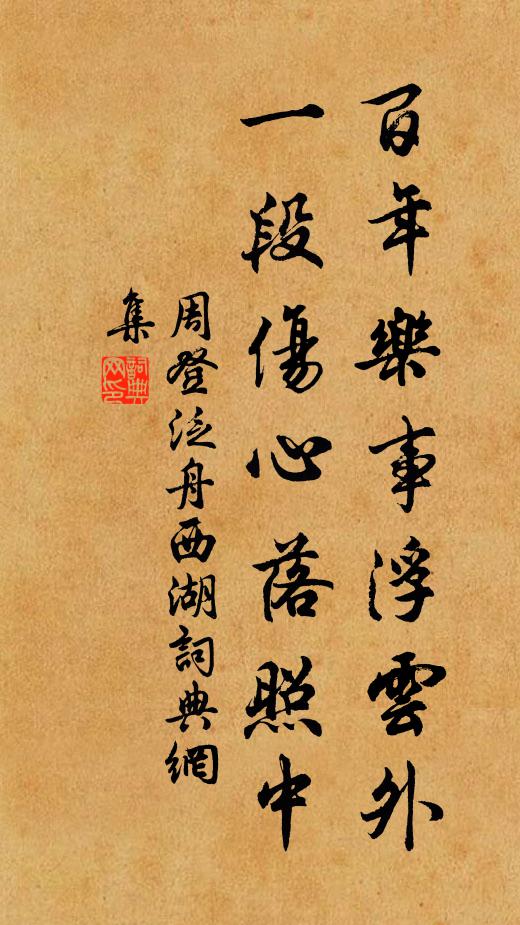 百年樂事浮雲外
一段傷心落照中
周登泛舟西湖詞典網
集
詞典
网印